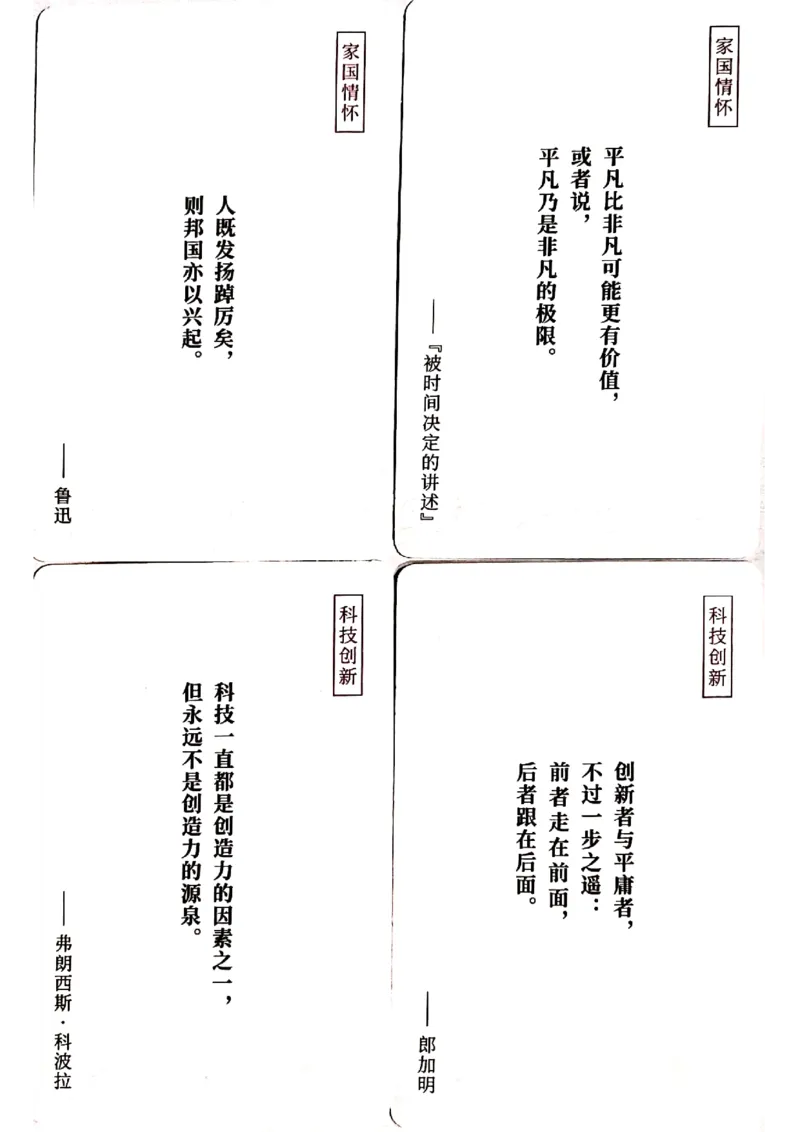 家国情怀
人既发扬踔厉矣，
则邦国亦以兴起。
——鲁迅
家国情怀
平凡比非凡可能更有价值，
或者说，
平凡乃是非凡的极限。
——『被时间决定的讲述』
科技创新
科技一直都是创造力的因素之一，
但永远不是创造力的源泉。
——弗朗西斯·科波拉
科技创新
创新者与平庸者，
不过一步之遥：
前者走在前面，
后者跟在后面。
——郎加明